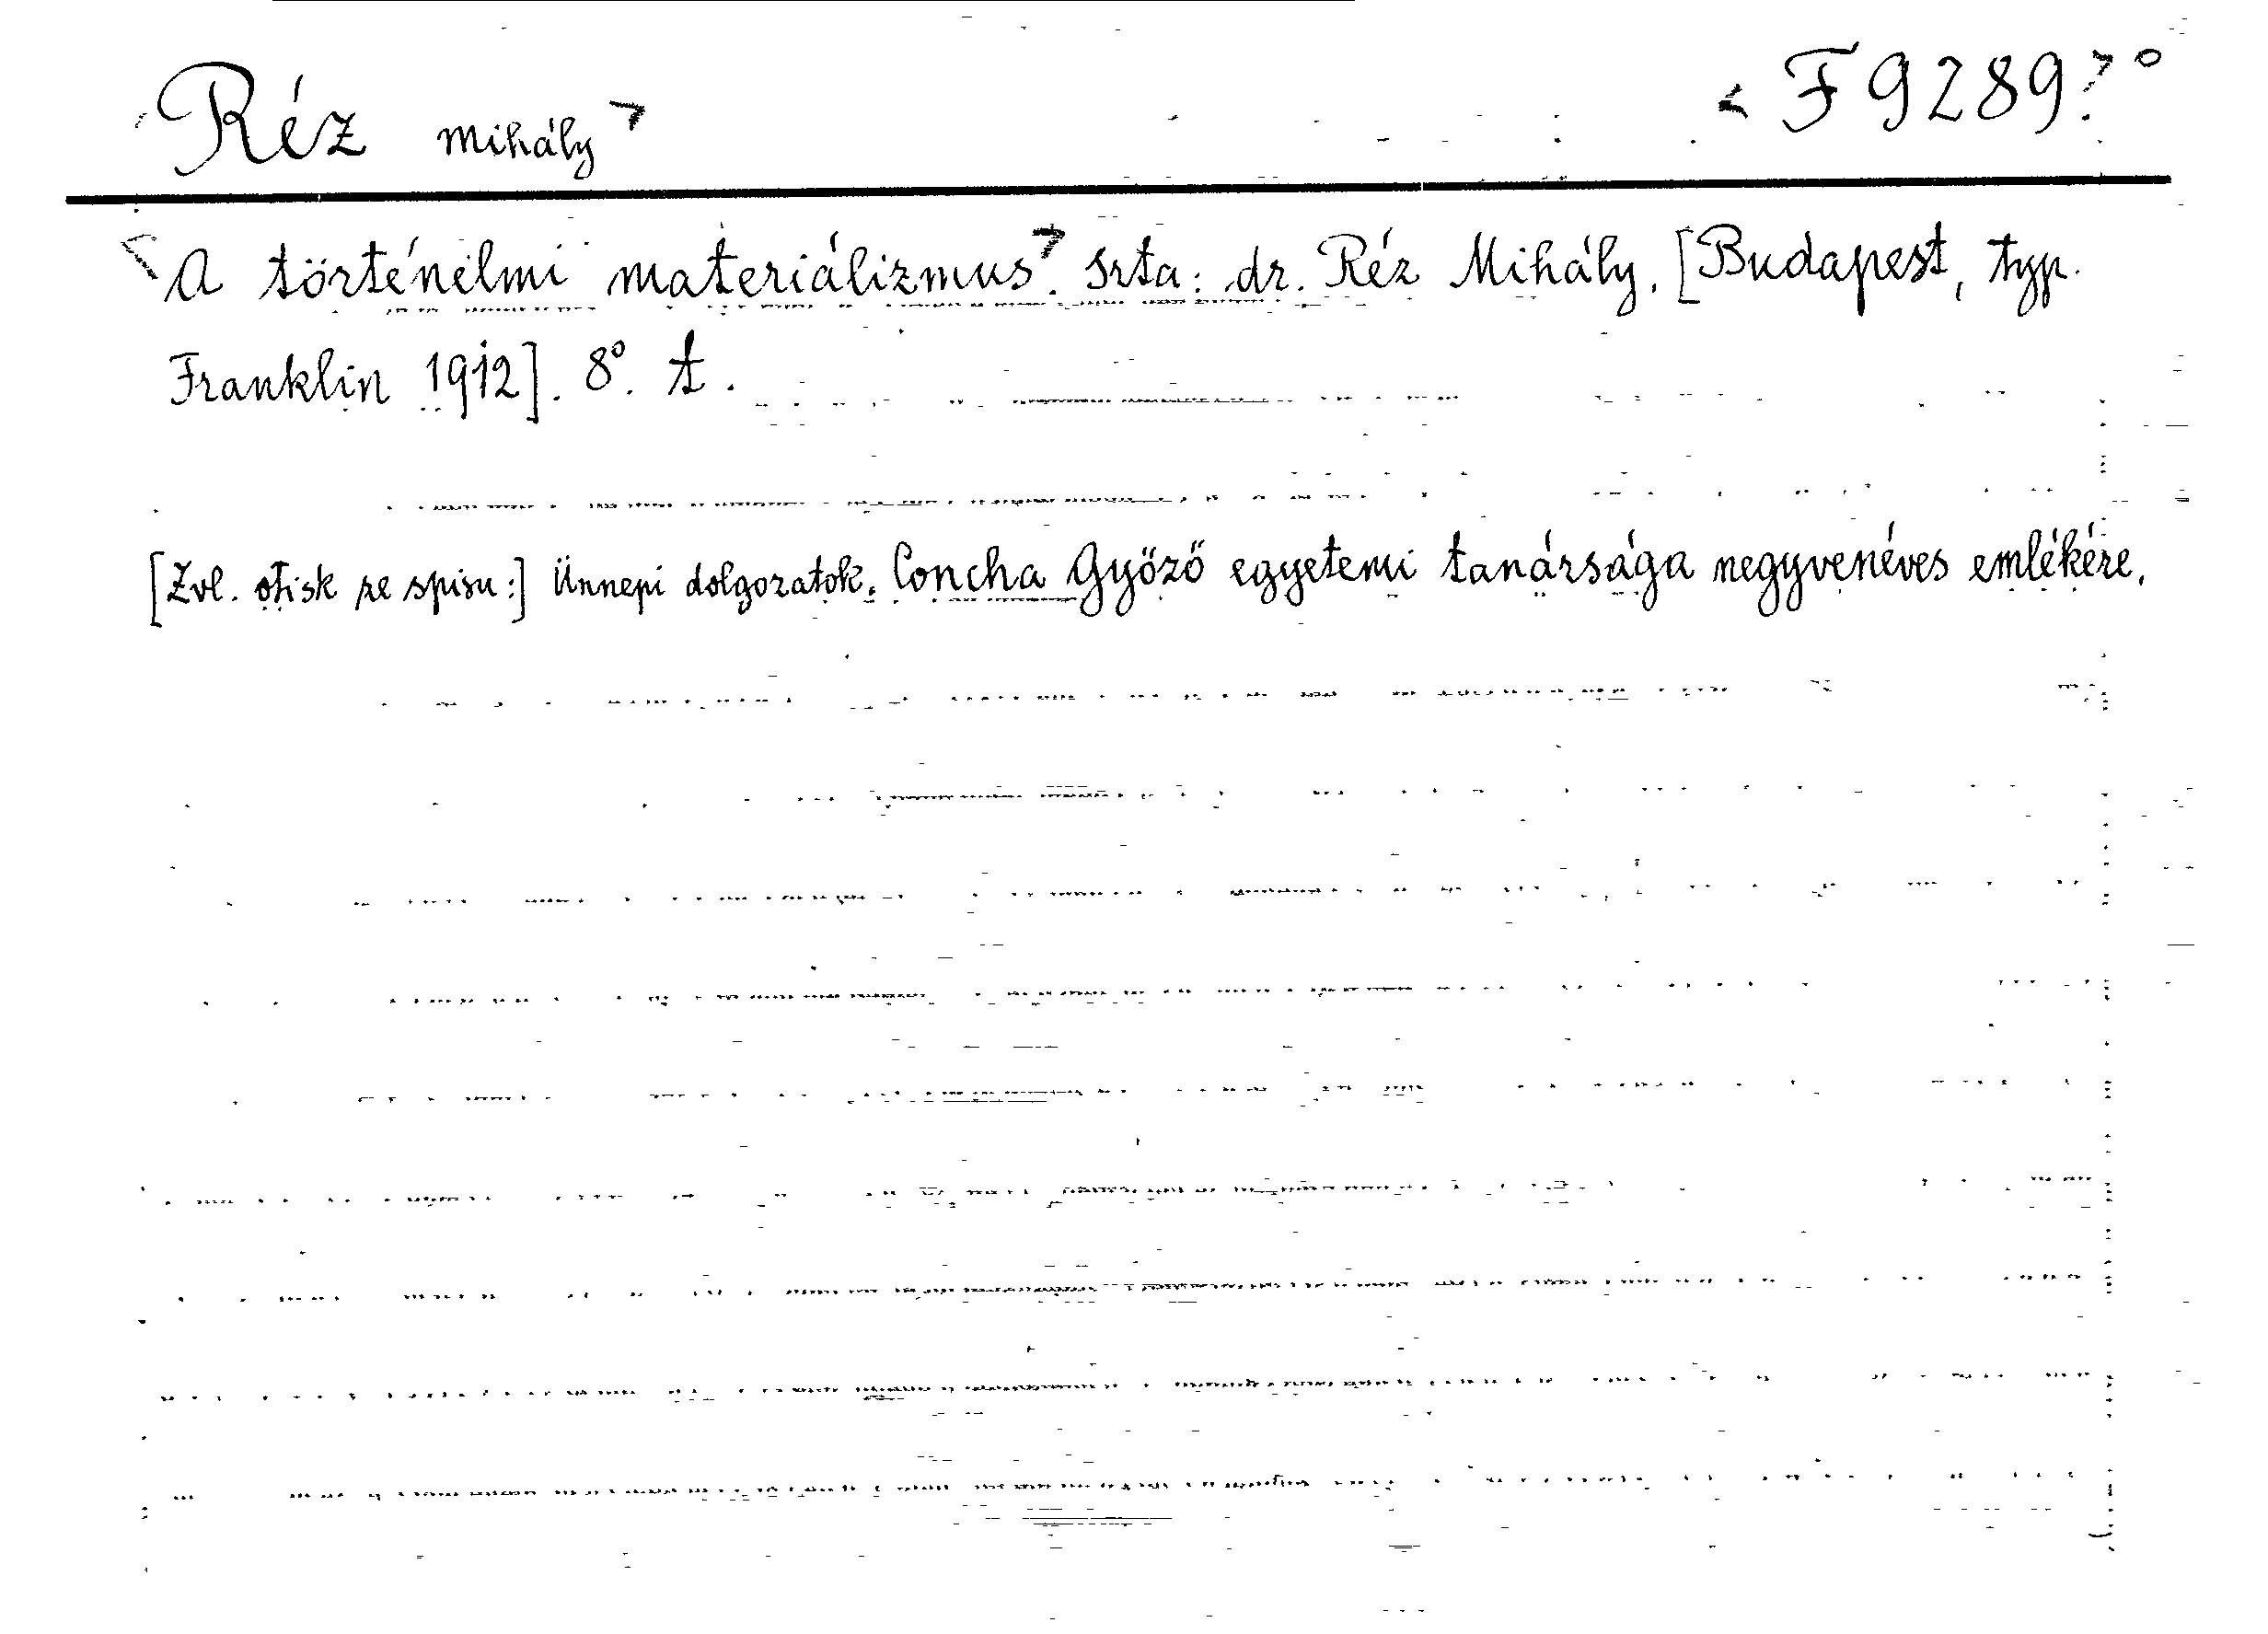 Réz Mihály> <F 9289?>°
<A történelmi materiálizmus>. Irta: dr. Réz Mihály. [Budapest, typ.
Franklin 1912]. 8°. t.
[Zvl. otisk ze spisu:] Ünnepi dolgozatok. Concha Győző egyetemi tanársága negyvenéves emlékére.